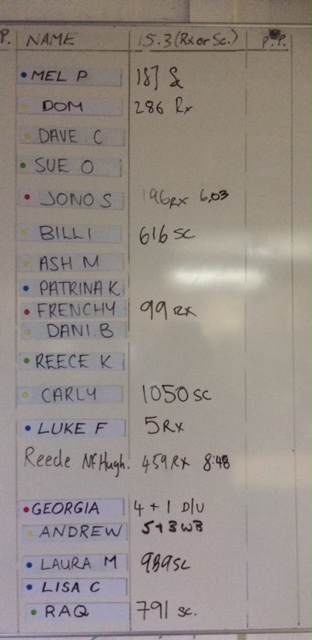 P. NAME 15.3 (Rx or Sc.) P.P.
MEL P 187 Sc
DOM 286 Rx
DAVE. C
SUE O
JONO S 196 Rx 6.03
BILLI 616 SC
ASH M
PATRINA K
FRENCHY 99 RX
DANI. B
REECE K
CARLY 1050 SC
LUKE F 5 RX
Reede McHugh. 459 RX 8:48
GEORGIA 4 + 1 D/U
ANDREW 5+3 WB
LAURA M 989 SC
LISA C
RAQ 791 SC.